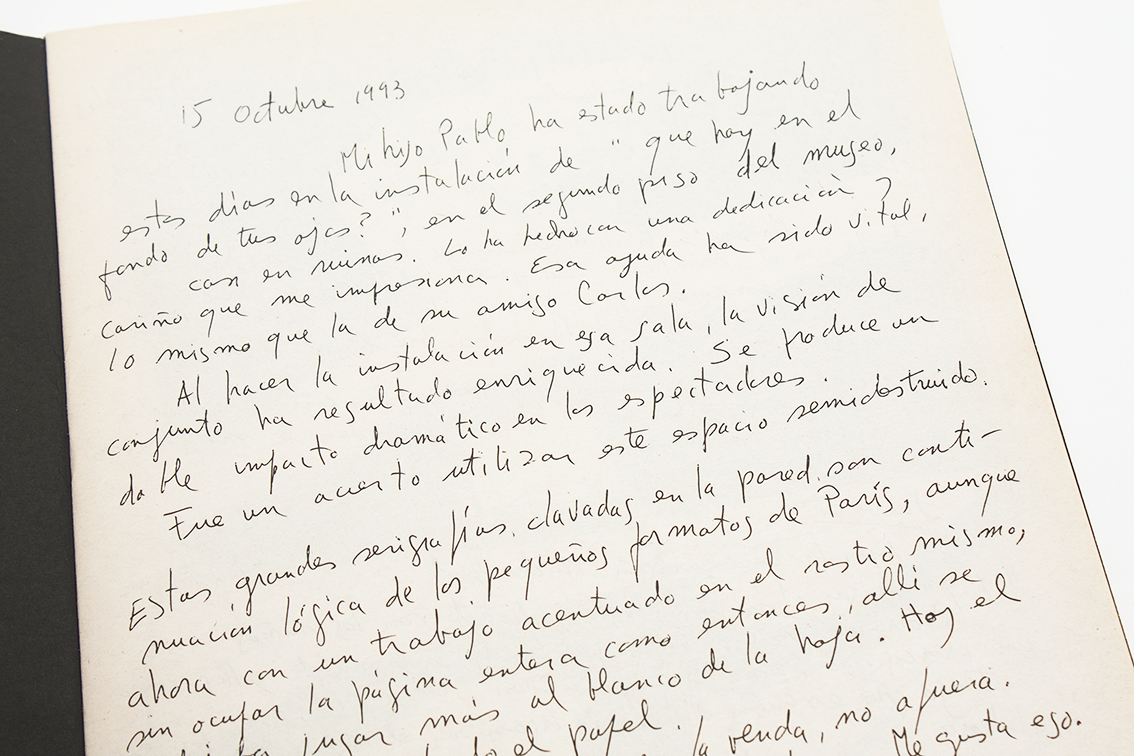 15 octubre 1993
Mi hijo Pablo ha estado trabajando
estos días en la instalación de "que hay en el
fondo de tus ojos?", en el segundo piso del museo,
casi en ruinas. Lo ha hecho con una dedicación y
cariño que me impresiona. Esa ayuda ha sido vital,
lo mismo que la de su amigo Carlos.
Al hacer la instalación en esa sala, la visión de
conjunto ha resultado enriquecida. Se produce un
doble impacto dramático en los espectadores.
Fue un acierto utilizar este espacio semidestruido.
Estas grandes serigrafías, clavadas en la pared son conti-
nuación lógica de los pequeños formatos de París, aunque
ahora con un trabajo acentuado en el rostro mismo,
sin ocupar la página entera como entonces, allí se
jugar más al blanco de la hoja. Hoy el
el papel.
la venda, no afuera.
Me gusta eso.